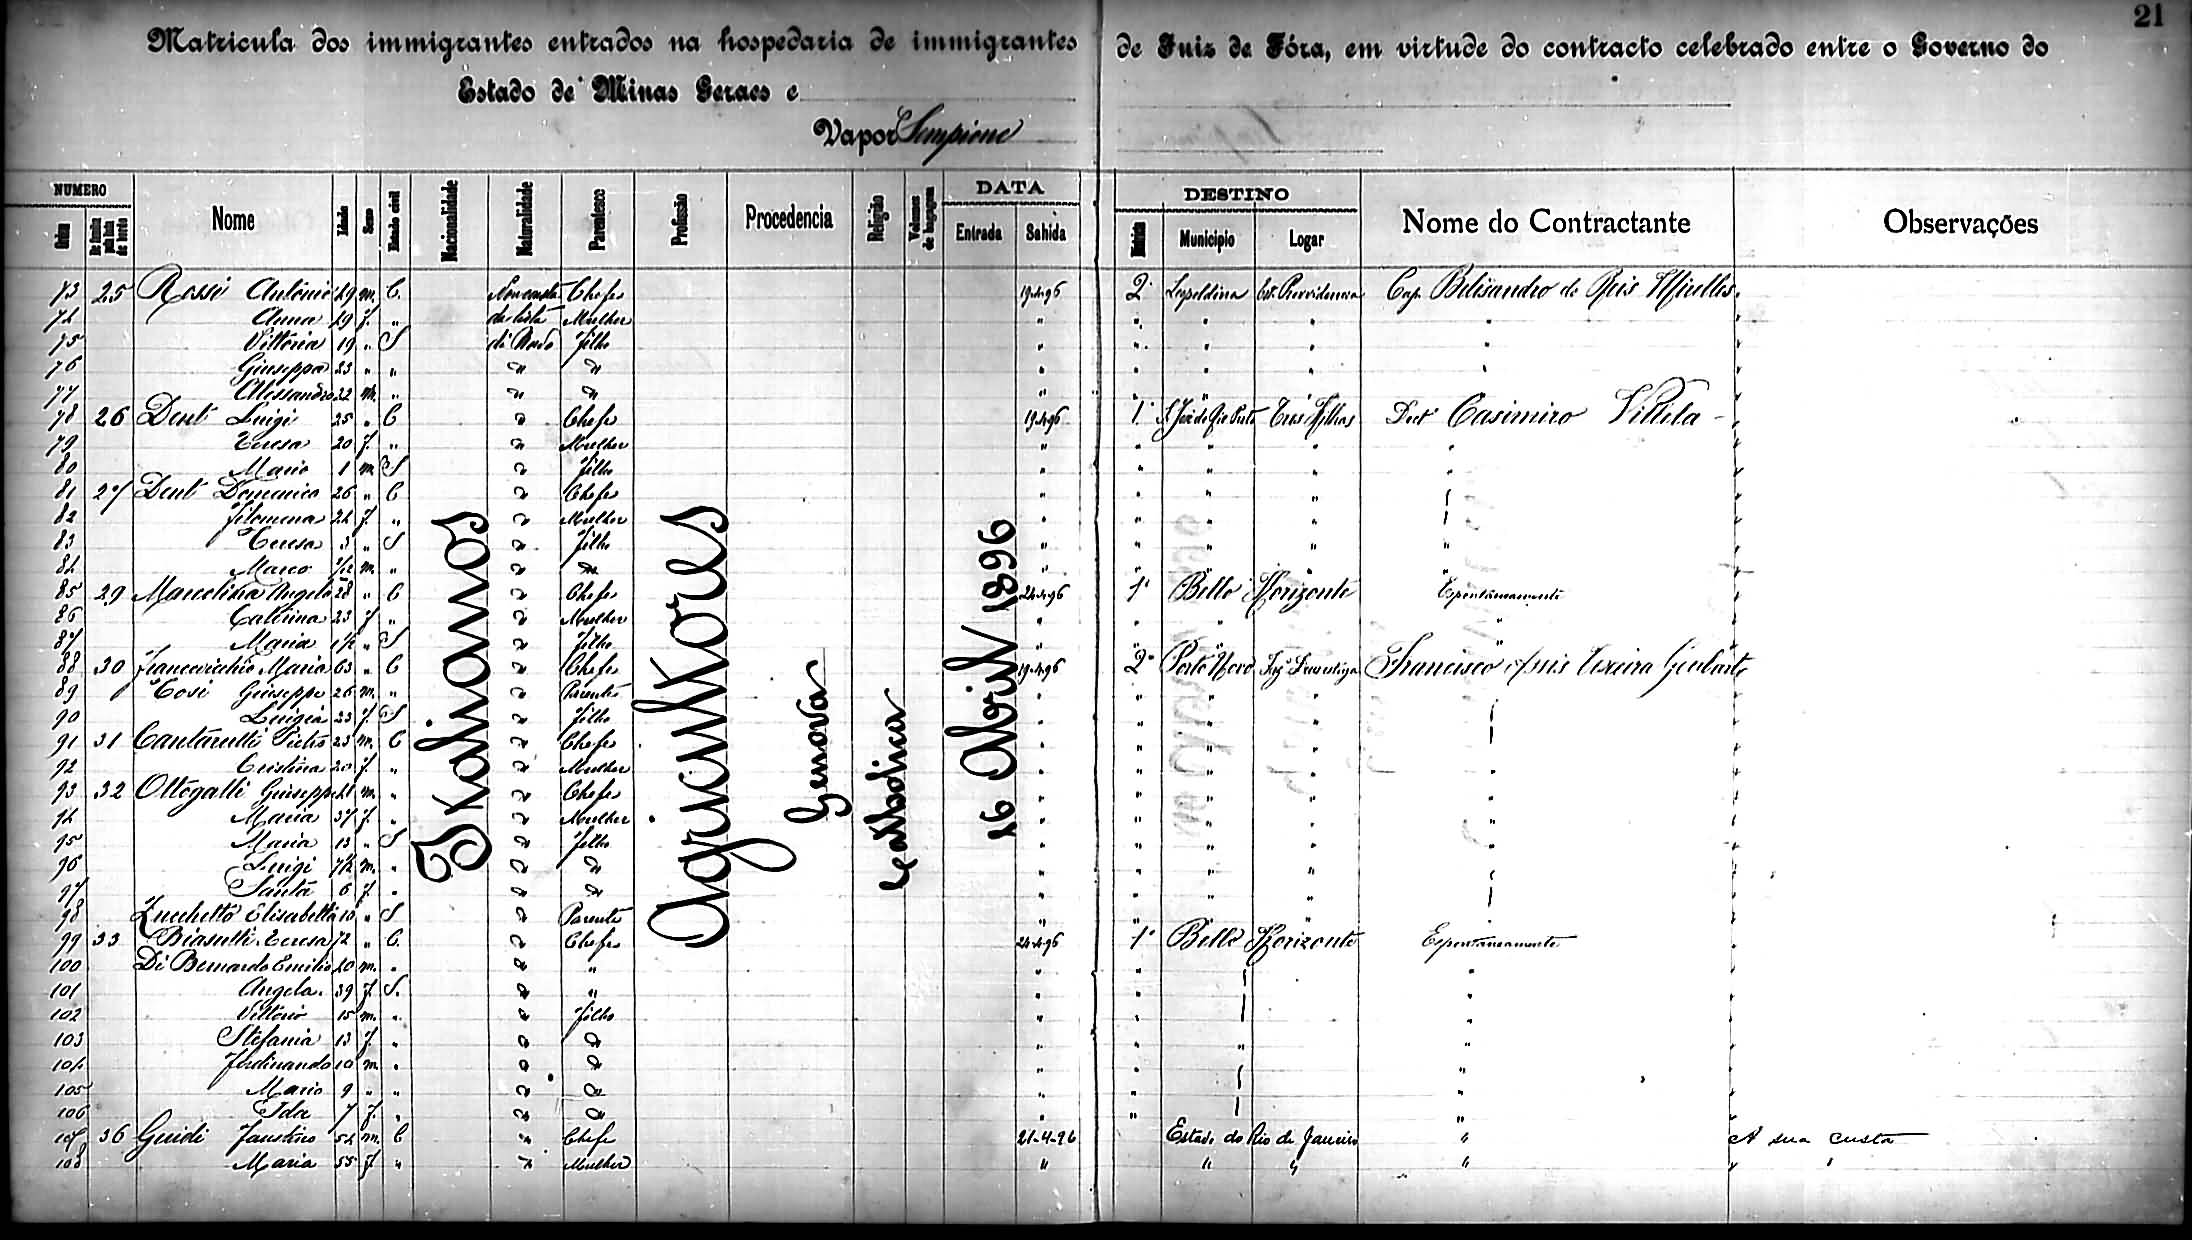 21
Matricula dos immigrantes entrados na hospedaria de immigrantes de Juiz de Fóra, em virtude do contracto celebrado entre o Governo do
Estado de Minas Geraes e
Vapor Sempione
NUMERO DATA DESTINO
Ordem Nome Idade Sexo Estado civil Nacionalidade Naturalidade Parentesco Profissão Procedencia Religião Volumes de bagagem Entrada Sahida Municipio Logar Nome do Contractante Observações
Italianos Agricultores Genova Catholica 16 Abril 1896
73 25 Rossi Antonio 29 m. C. Chefe 19-4-96 2ª Leopoldina Est. Providencia Cap. Belisandro do Reis Meirelles
74 Anna 29 f. " Mulher "
75 Vittoria 19 " S Filho "
76 Giuseppa 23 " " " " "
77 Alessandro 22 m. " " " "
78 26 Dent Luigi 25 " C " Chefe 19-4-96 1ª S. José do Rio Preto Tres Ilhas Dor Casimiro Villela
79 Teresa 20 f. " " Mulher "
80 Mario 1 m. S " Filho "
81 27 Dent Domenico 26 " C " Chefe "
82 Filomena 24 f. " " Mulher "
83 Teresa 3 " S " Filho "
84 Marco 1/12 m. " " " "
85 29 Marcelina Angelo 28 " C " Chefe 24-4-96 1ª Bello Horizonte Espontaneamente
86 Catterina 23 f " " Mulher "
87 Maria " S " Filho "
88 30 Maria 63 " C " Chefe 19-4-96 2ª Porto Novo Francisco Teixeira
89 Cosi Giuseppe 26 m. " " Parente "
90 Luigia 23 f. S " Filho "
91 31 Cantarutti Pietro 23 m. C " Chefe "
92 Cristina 20 f. " " Mulher "
93 32 Ottogalli Giuseppe m. " " Chefe "
94 Maria 37 f. " " Mulher "
95 Maria 13 " S " Filho "
96 Luigi m. " " " "
97 Santa 6 f. " " " "
98 Zucchetto Elisabetta 10 " S " Parente "
99 33 Biasutti Teresa 72 " C. " Chefe 24-4-96 1ª Bello Horizonte Espontaneamente
100 Di Bernardo Emilio 40 m. " " " "
101 Angela 39 f. S. " " "
102 Vittorio 15 m. " " Filho "
103 Stefania 13 f. " " " "
104 Ferdinando 10 m. " " " "
105 Mario 9 " " " " "
106 Ida 7 f. " " " "
107 36 Guidi Faustino 54 m. C " Chefe 21-4-96 Estado do Rio de Janeiro " A sua custa
108 Maria 55 f. " " Mulher " " " " " "